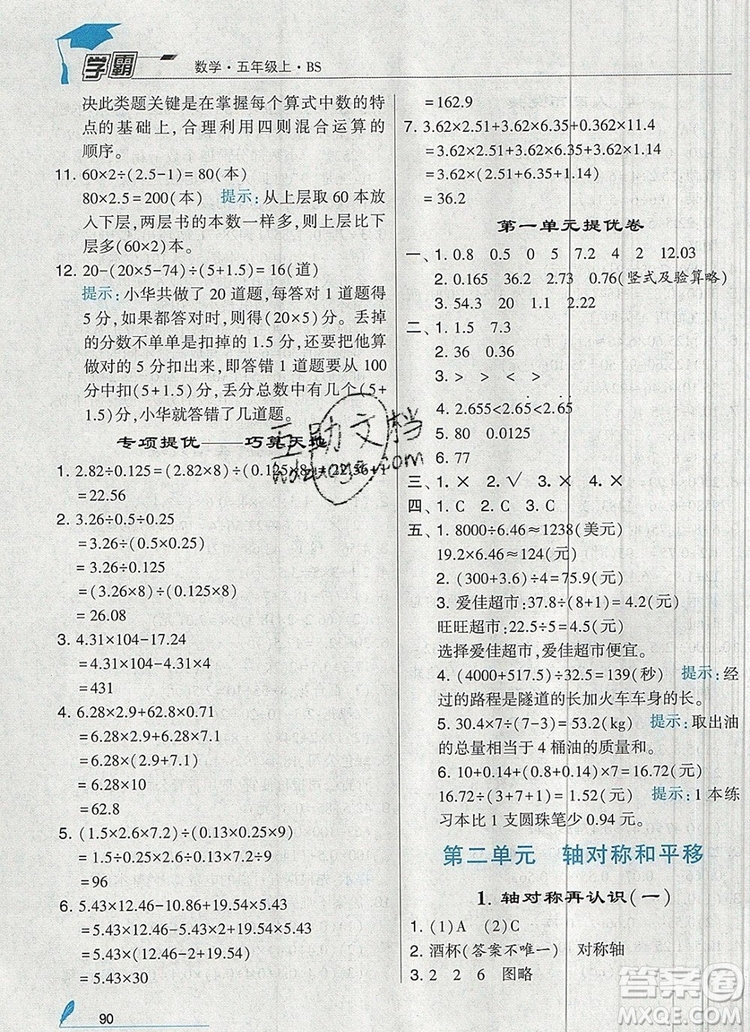 学霸 数学·五年级上·BS
决此类题关键是在掌握每个算式中数的特
点的基础上,合理利用四则混合运算的
顺序。
11. 60×2÷(2.5-1)=80(本)
80×2.5=200(本) 提示:从上层取60本放
入下层,两层书的本数一样多,则上层比下
层多(60×2)本。
12. 20-(20×5-74)÷(5+1.5)=16(道)
提示:小华共做了20道题,每题答对得
5分,如果都答对时,则有(20×5)分。丢掉
的分数不单单是扣掉的1.5分,还要加上
5分扣出来,即答错1道题要从100
分中扣(5+1.5)分,丢分总数中有几个
(5+1.5)分,小华就答错了几道题。
专项提优——巧算天地
1. 2.82÷0.125=(2.82×8)÷(0.125×8)
=22.56
2. 3.26÷0.5÷0.25
=3.26÷(0.5×0.25)
=3.26÷0.125
=(3.26×8)÷(0.125×8)
=26.08
3. 4.31×104-17.24
=4.31×104-4.31×4
=431
4. 6.28×2.9+62.8×0.71
=6.28×2.9+6.28×7.1
=6.28×(2.9+7.1)
=6.28×10
=62.8
5. (1.5×2.6×7.2)÷(0.13×0.25×9)
=1.5÷0.25×(2.6÷0.13)×(7.2÷9)
=96
6. 5.43×12.46-10.86+5.43×19.54
=5.43×12.46-5.43×2+5.43×19.54
=5.43×(12.46-2+19.54)
=5.43×30
=162.9
7. 3.62×2.51+3.62×6.35+0.362×11.4
=3.62×2.51+3.62×6.35+3.62×1.14
=3.62×(2.51+6.35+1.14)
=3.62×10
=36.2
第一单元提优卷
一、1. 0.8 0.5 0 5 7.2 4 2 12.03
2. 0.165 36.2 2.73 0.76(竖式及验算略)
3. 54.3 20 1.9 2.22
二、1. 1.5 7.3
2. 36 0.36
3. > > < >
4. 2.655<2.65<2.65
5. 0.09 0.1
6. 77
三、1. × 2. √ 3. × 4. ×
四、1. C 2. C 3. C
五、1. 8000÷6.46≈1238(美元)
19.2×6.46≈124(元)
2. (300+3.6)÷6.6=46(千米)
3. 爱佳超市:37.8÷(8+1)=4.2(元)
旺旺超市:22.5÷5=4.5(元)
选择爱佳超市便宜。
4. (4000+517.5)÷32.5=139(秒) 提示:经
过的路程是隧道的长加火车车身的长。
5. 30.4×7÷(7-3)=53.2(kg) 提示:取出油
的总量相当于4桶油的质量和。
6. 10+0.14+(8-0.14)×0.94×7=16.72(元)
16.72÷(3+7+1)=1.52(元) 提示:1本练
习本比1支圆珠笔少0.94元。
第二单元 轴对称和平移
1. 轴对称再认识(一)
1. (1)A (2)C
2. 酒杯(答案不唯一) 对称轴
3. 2 2 6 图略
90
互助文档
答案圈
MXQE.COM